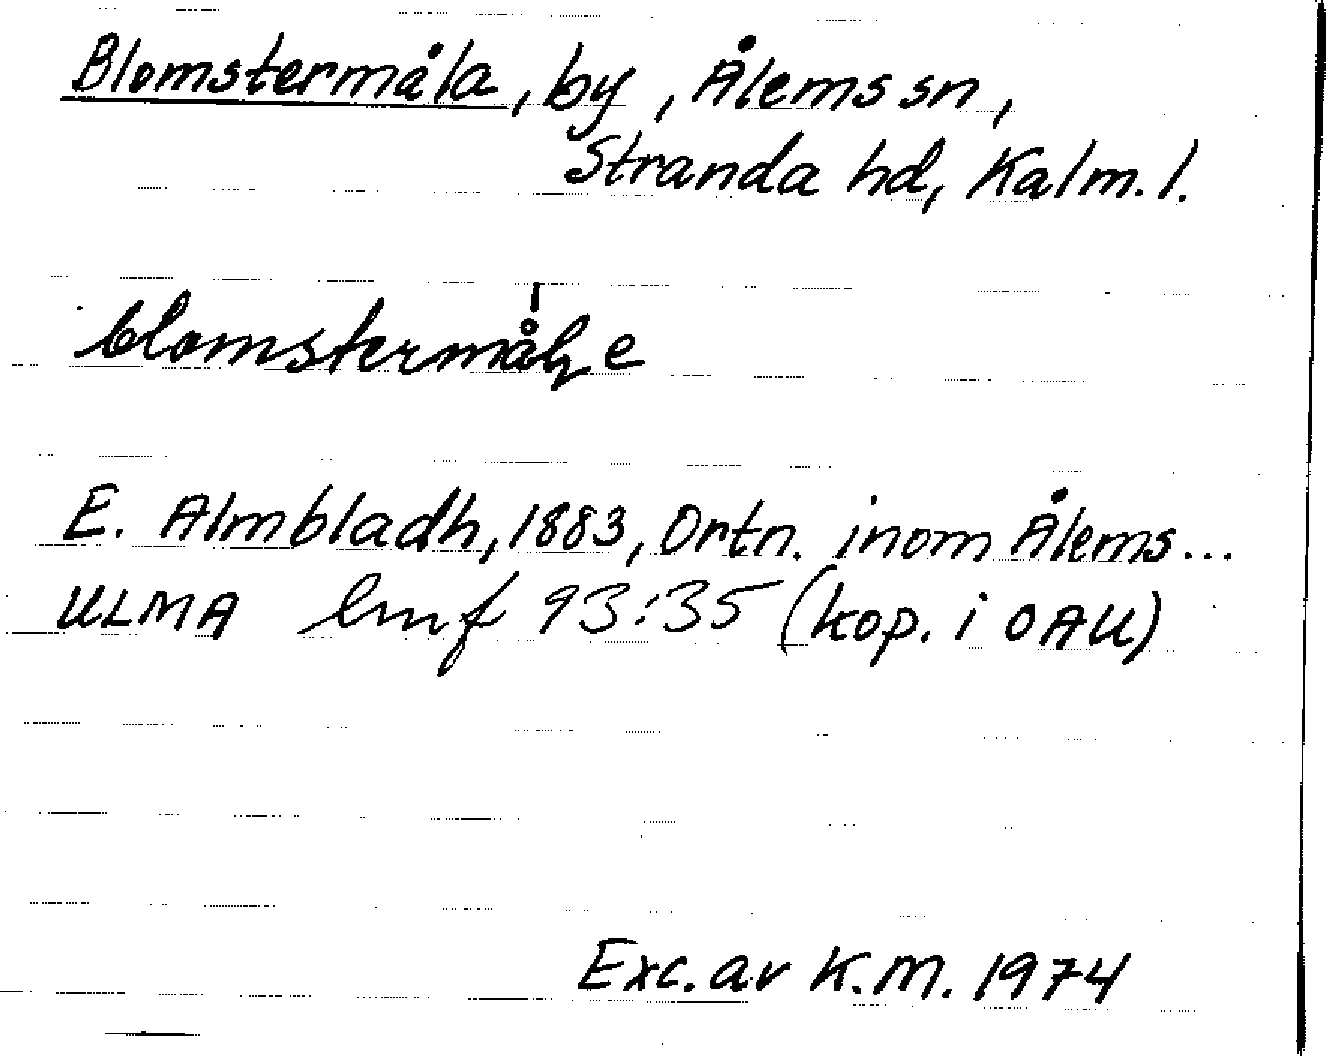 Blomstermåla, by, Ålems sn,
Stranda hd, Kalm. l.
blomstermåļe
E. Almbladh, 1883, Ortn. inom Ålems...
ULMA lmf 93:35 (kop. i OAU)
Exc. av K.M. 1974